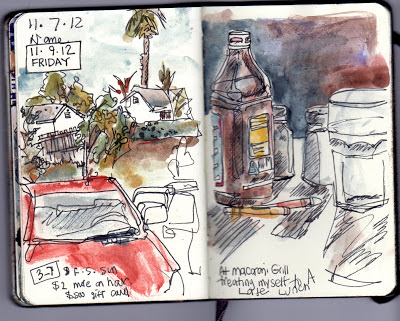 11.7.12
11.9.12
FRIDAY
3-7 $ F.S. Sun
$2 more on hair
$500 gift card
At macaroni Grill
treating myself to A
Late Lunch